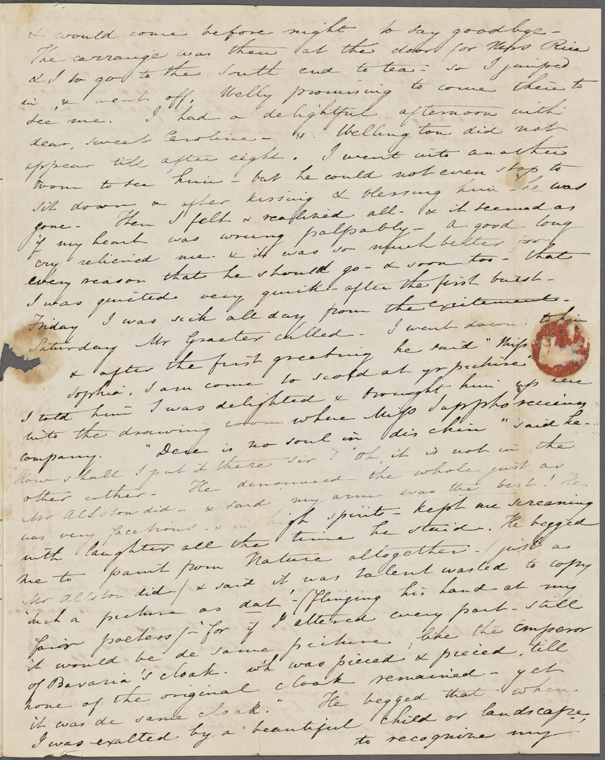 & would come before night to say goodbye-
The carriage was then at the door for Miss Rice
& I to go to the South end to tea- so I jumped
in & went off, Welly promising to come there to
see me. I had a delightful afternoon with
dear, sweet Caroline- & Wellington did not
appear till after eight. I went into another
room to see him- but he could not even stop to
sit down & after kissing & blessing him he was
gone. Then I felt & realized all- & it seemed as
if my heart was wrung palpably- A good long
cry relieved me & it was so much better for
every reason that he should go- & soon too- that
I was quieted very quick after the first burst-
Friday I was sick all day from the excitement-
Saturday Mr Graeter called. I went down to him
& after the first greeting he said "Miss
Sophia, I am come to scold at yr picture"
I told him I was delighted & brought him up here
into the drawing room where Miss Sappho receives
company. "Dere is no soul in dis chin" said he-
How shall I put it there sir? "Oh it is not in the
other either- He denounced the whole just as
Mr Allston did- & said my arm was the best! He
was very facetious- & in high spirits- kept me screaming
with laughter all the time he staid. He begged
me to paint from Nature altogether- (just as
Mr Allston did) & said it was talent wasted to copy
such a picture as dat- (flinging his hand at my
fair poetess)- "for if I altered every part- still
it would be de same picture, like the Emperor
of Bavaria's cloak- wh was pieced & pieced, till
none of the original cloak remained- yet
it was de same cloak." He begged that when
I was exalted by a beautiful child or landscape,
to recognize my